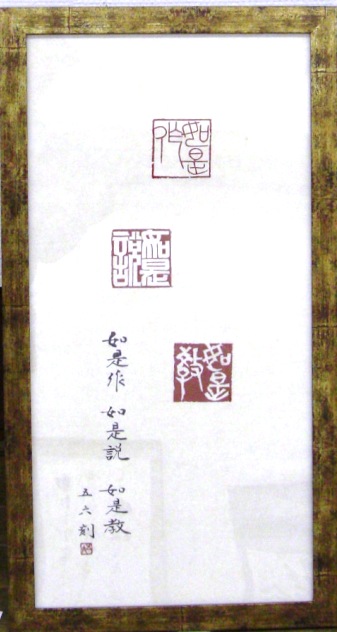 如是作
如是説
如是教
如是作 如是説 如是教
五六刻